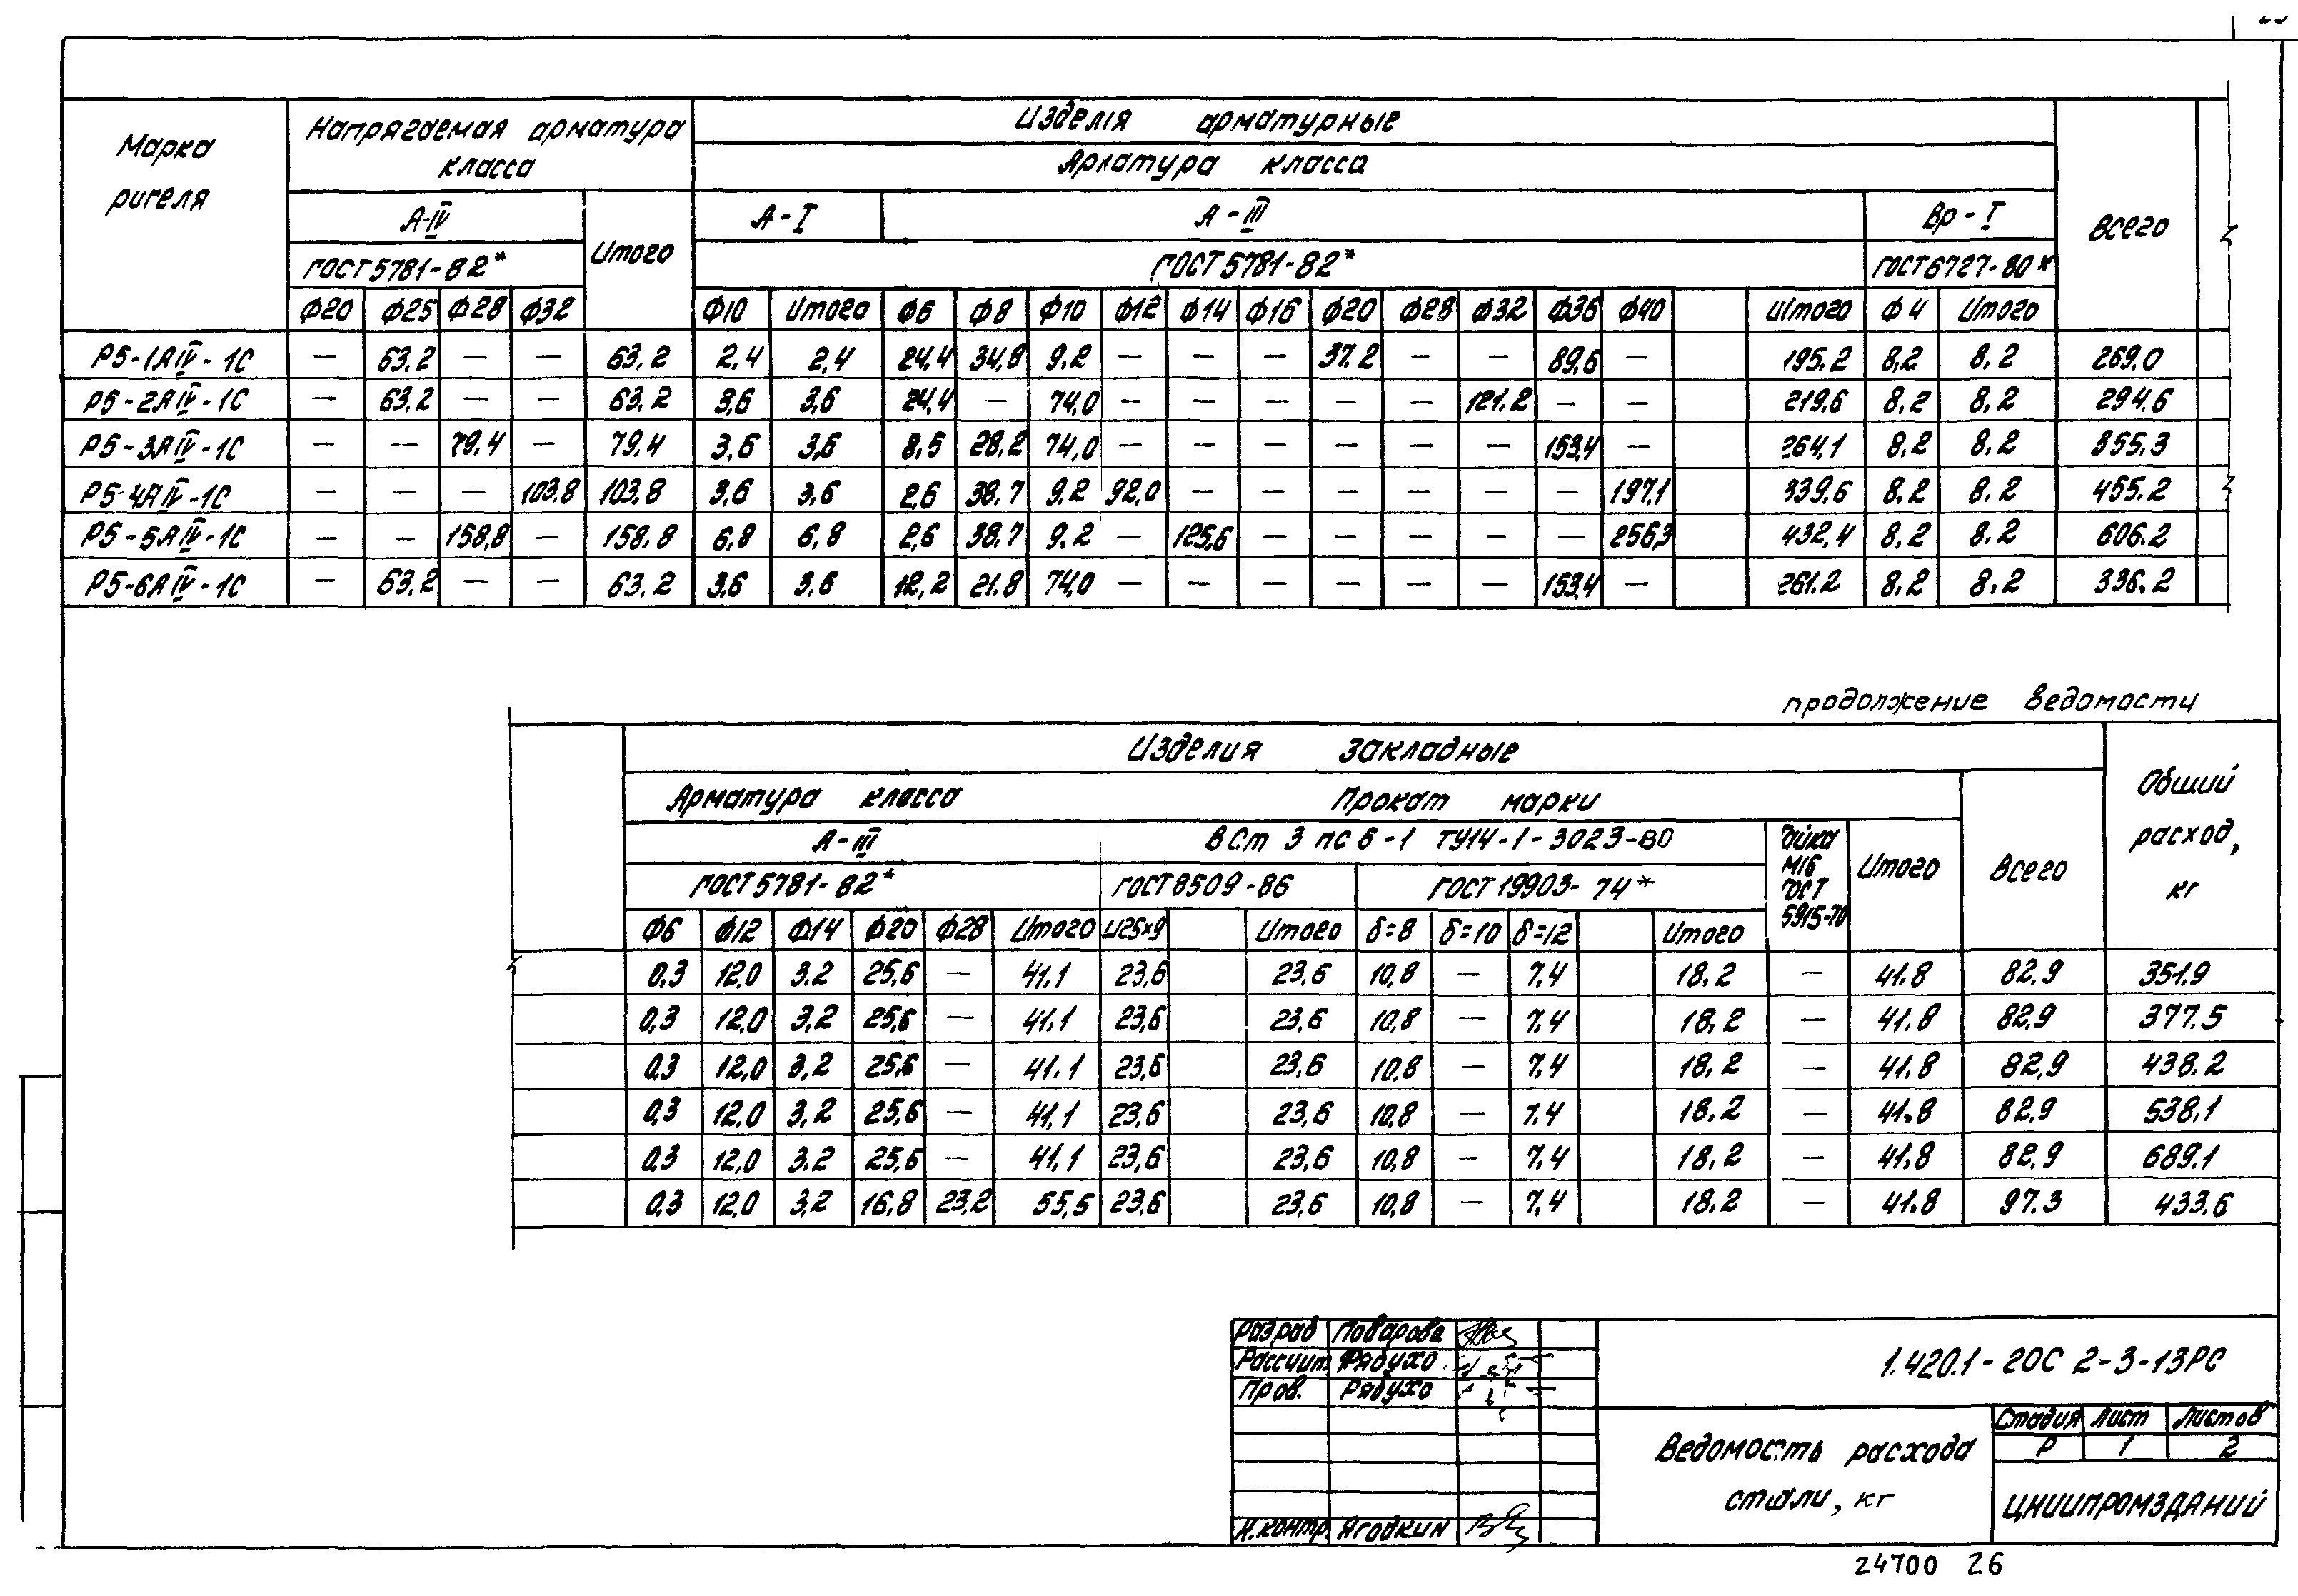 Марка ригеля | Напрягаемая арматура класса | Изделия арматурные | Всего
Арматура класса
А-IV | Итого | А-I | А-III | Вр-I
ГОСТ 5781-82* | ГОСТ 5781-82* | ГОСТ 6727-80*
Ф20 | Ф25 | Ф28 | Ф32 | Ф10 | Итого | Ф6 | Ф8 | Ф10 | Ф12 | Ф14 | Ф16 | Ф20 | Ф28 | Ф32 | Ф36 | Ф40 | Итого | Ф4 | Итого
Р5-1АIV-1С | — | 63,2 | — | — | 63,2 | 2,4 | 2,4 | 24,4 | 34,8 | 9,2 | — | — | — | 37.2 | — | — | 89,6 | — | 195,2 | 8,2 | 8,2 | 269.0
Р5-2АIV-1С | — | 63,2 | — | — | 63,2 | 3,6 | 3,6 | 24,4 | — | 74,0 | — | — | — | — | — | 121.2 | — | — | 219,6 | 8,2 | 8,2 | 294.6
Р5-3АIV-1С | — | — | 79,4 | — | 79,4 | 3,6 | 3,6 | 8,5 | 28,2 | 74,0 | — | — | — | — | — | — | 153,4 | — | 264,1 | 8,2 | 8,2 | 355.3
Р5-4АIV-1С | — | — | — | 103,8 | 103,8 | 3,6 | 3,6 | 2,6 | 38,7 | 9,2 | 92,0 | — | — | — | — | — | — | 197,1 | 339,6 | 8,2 | 8,2 | 455.2
Р5-5АIV-1С | — | — | 158,8 | — | 158,8 | 6,8 | 6,8 | 2,6 | 38,7 | 9,2 | — | 125,6 | — | — | — | — | — | 256,3 | 432,4 | 8,2 | 8,2 | 606.2
Р5-6АIV-1С | — | 63,2 | — | — | 63,2 | 3,6 | 3,6 | 12,2 | 21.8 | 74,0 | — | — | — | — | — | — | 153,4 | — | 261.2 | 8,2 | 8,2 | 336,2
продолжение ведомости
Изделия закладные | Общий расход, кг
Арматура класса | Прокат марки | Всего
А-III | ВСт 3 пс 6-1 ТУ14-1-3023-80 | Гайка М16 ГОСТ 5915-70 | Итого
ГОСТ 5781-82* | ГОСТ 8509-86 | ГОСТ 19903-74*
Ф6 | Ф12 | Ф14 | Ф20 | Ф28 | Итого | L125×9 | Итого | δ=8 | δ=10 | δ=12 | Итого
0,3 | 12,0 | 3,2 | 25,6 | — | 41,1 | 23,6 | 23,6 | 10,8 | — | 7,4 | 18,2 | — | 41.8 | 82,9 | 351.9
0,3 | 12,0 | 3,2 | 25,6 | — | 41,1 | 23,6 | 23,6 | 10,8 | — | 7,4 | 18,2 | — | 41,8 | 82,9 | 377.5
0,3 | 12,0 | 3,2 | 25,6 | — | 41.1 | 23,6 | 23,6 | 10,8 | — | 7,4 | 18,2 | — | 41,8 | 82,9 | 438.2
0,3 | 12,0 | 3,2 | 25,6 | — | 41,1 | 23,6 | 23,6 | 10,8 | — | 7,4 | 18,2 | — | 41,8 | 82,9 | 538.1
0,3 | 12,0 | 3,2 | 25,6 | — | 41,1 | 23,6 | 23,6 | 10,8 | — | 7,4 | 18,2 | — | 41,8 | 82,9 | 689.1
0,3 | 12,0 | 3,2 | 16,8 | 23,2 | 55,5 | 23,6 | 23,6 | 10,8 | — | 7,4 | 18,2 | — | 41,8 | 97.3 | 433.6
Разраб Поварова
Рассчит. Рядухо
Пров. Рядухо
Н.контр. Ягодкин
1.420.1-20С 2-3-13РС
Ведомость расхода стали, кг
Стадия | Лист | Листов
Р | 1 | 2
ЦНИИПРОМЗДАНИЙ
24700 26